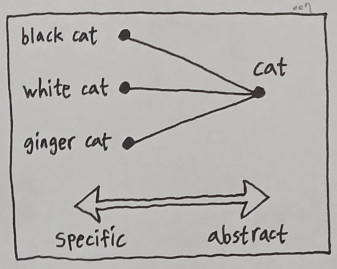 black cat
white cat
cat
ginger cat
specific
abstract